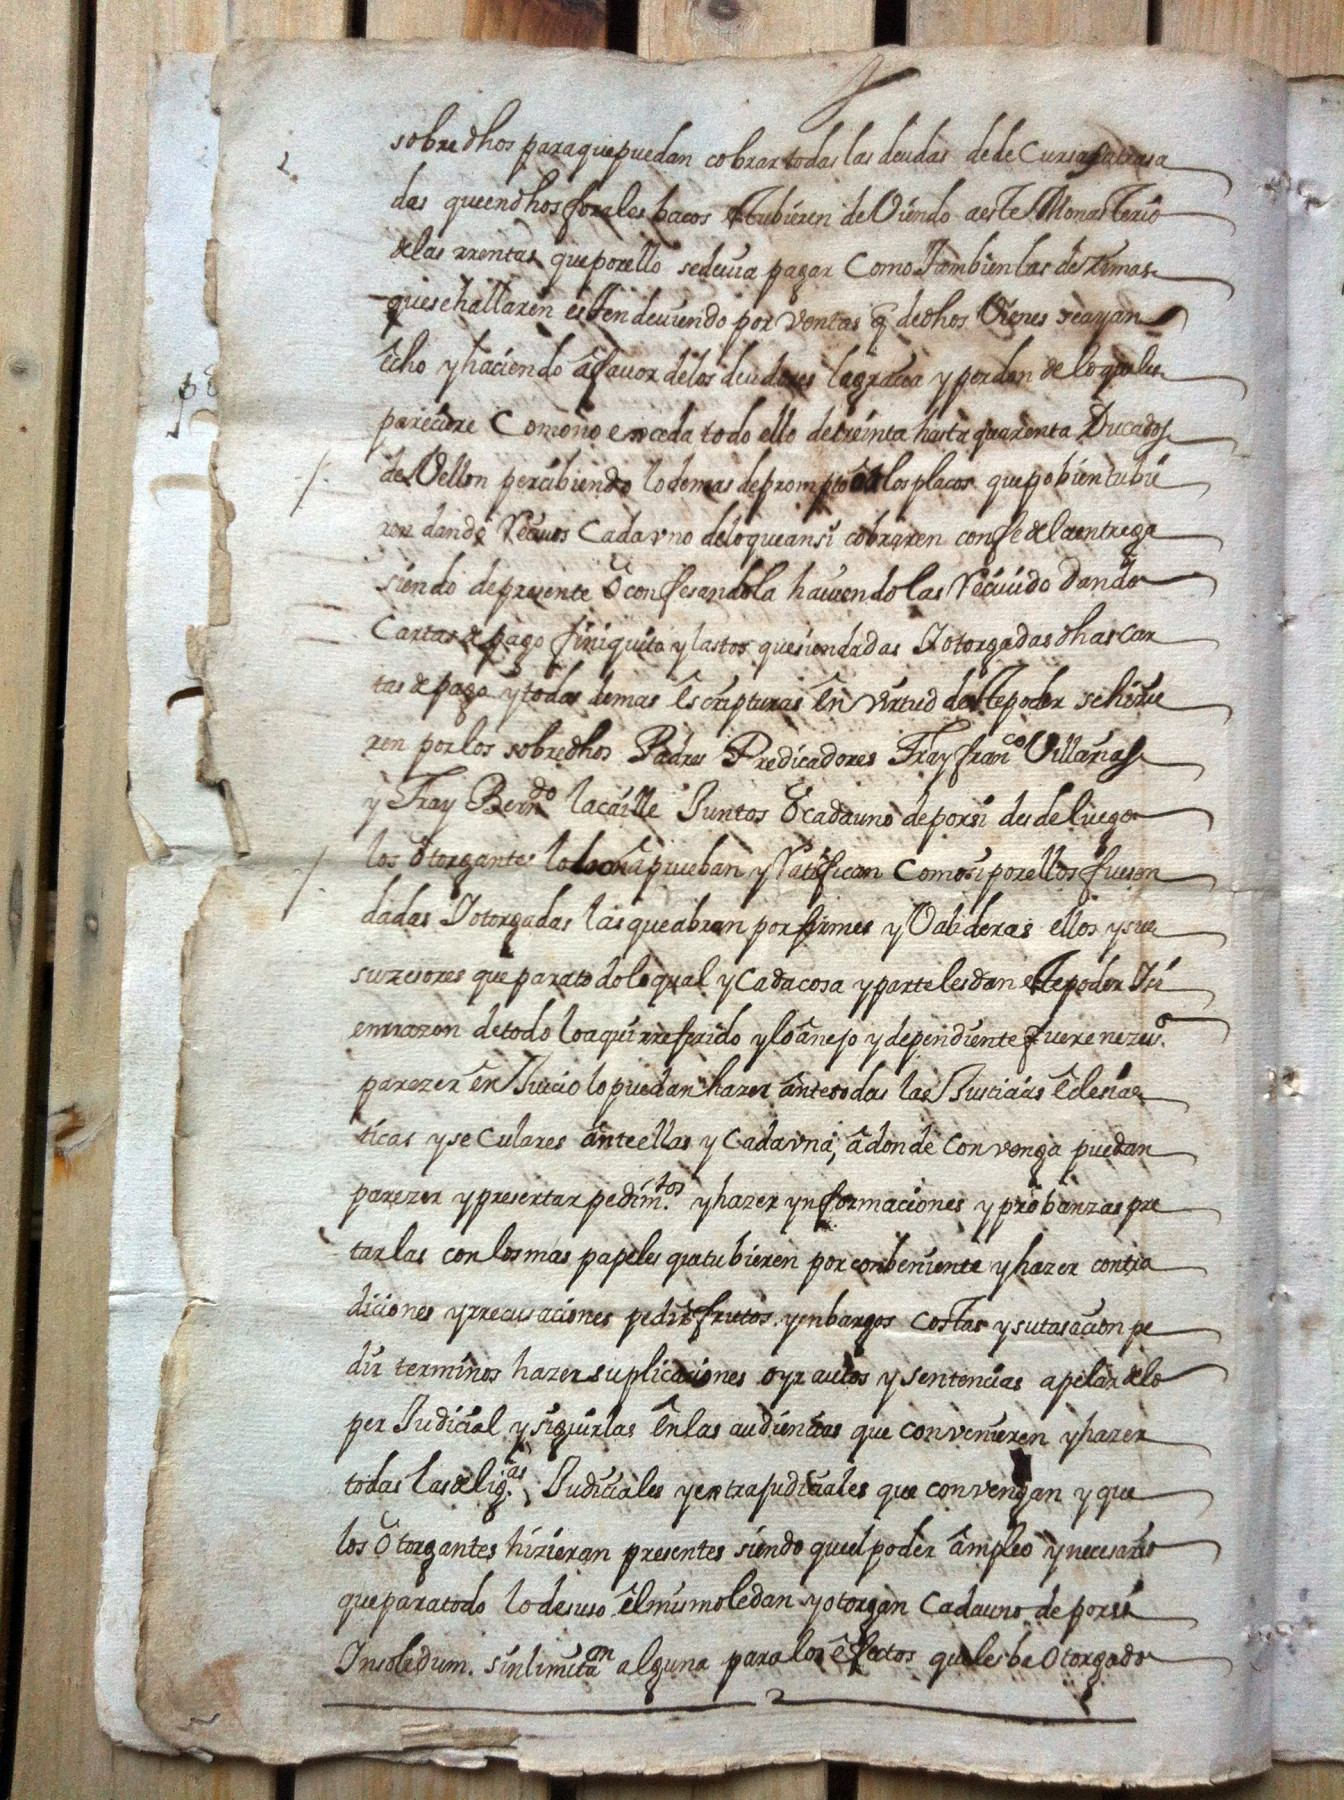 2.
sobredhos paraque puedan cobrar todas las deudas de de Cursas atrasa
das que en dhos forales bacos estubieren deviendo a este Monasterio
de las rrentas que por ello se devia pagar Como Tambien las de zimas
que se hallaren esten deviendo por ventas q de dhos Vienes se ayan
êcho y haciendo â favor de los deudores la gracia y perdon de lo que les
pareciere Como no exceda todo ello de treinta hasta quarenta Ducados
de Vellon percibiendo lo demas de prompto ô a los placos que po bien tubie
ren dando Recivos Cada vno de lo que ansi cobraren con fe de la entrega
siendo de presente ô confesandola haviendolas Recivido dando
Cartas de pago finiquito y lastos que siendadas Iotorgadas dhas Car
tas de pago y todas demas êscripturas ên virtud deste poder se hizie
ren por los sobredhos Padres Predicadores Fray franco Villañas
y Fray Berndo lacaille Juntos ô cada uno de por si desde luego
los ôtorgantes lo aprueban y Ratifican Como si por ellos fuesen
dadas Iotorgadas las que abran por firmes y Valideras ellos y sus
suzesores que para todo lo qual y Cada cosa y parte les dan este poder Isi
en rrazon de todo lo aqui rreferido y lo ânejo y dependiente fuere nezesº
parezer ên Juicio lo puedan hazer ânte todas las Justicias êclesias
ticas y seculares ânte ellas y Cada vna, âdonde Convenga puedan
parezer y presentar pedimtos y hazer ynformaciones y probanzas pre
tarlas con los mas papeles que tubieren por conbeniente y hazer contra
diciones y rrecusaciones pedir frutos y enbargos Costas y su tasacion pe
dir terminos hazer suplicaciones oyr autos y sentencias apelar de lo
per Judicial y siguirlas ên las audiencias que convenieren y hazer
todas las deligas Judiciales y extrajudiciales que convengan y que
los ôtorgantes hizieran presentes siendo que el poder âmpleo y necesario
que para todo lo de suso êl mismo le dan y otorgan Cada uno de por si
Insolidum. sin limitaon alguna para los êfectos que les ba Otorgado